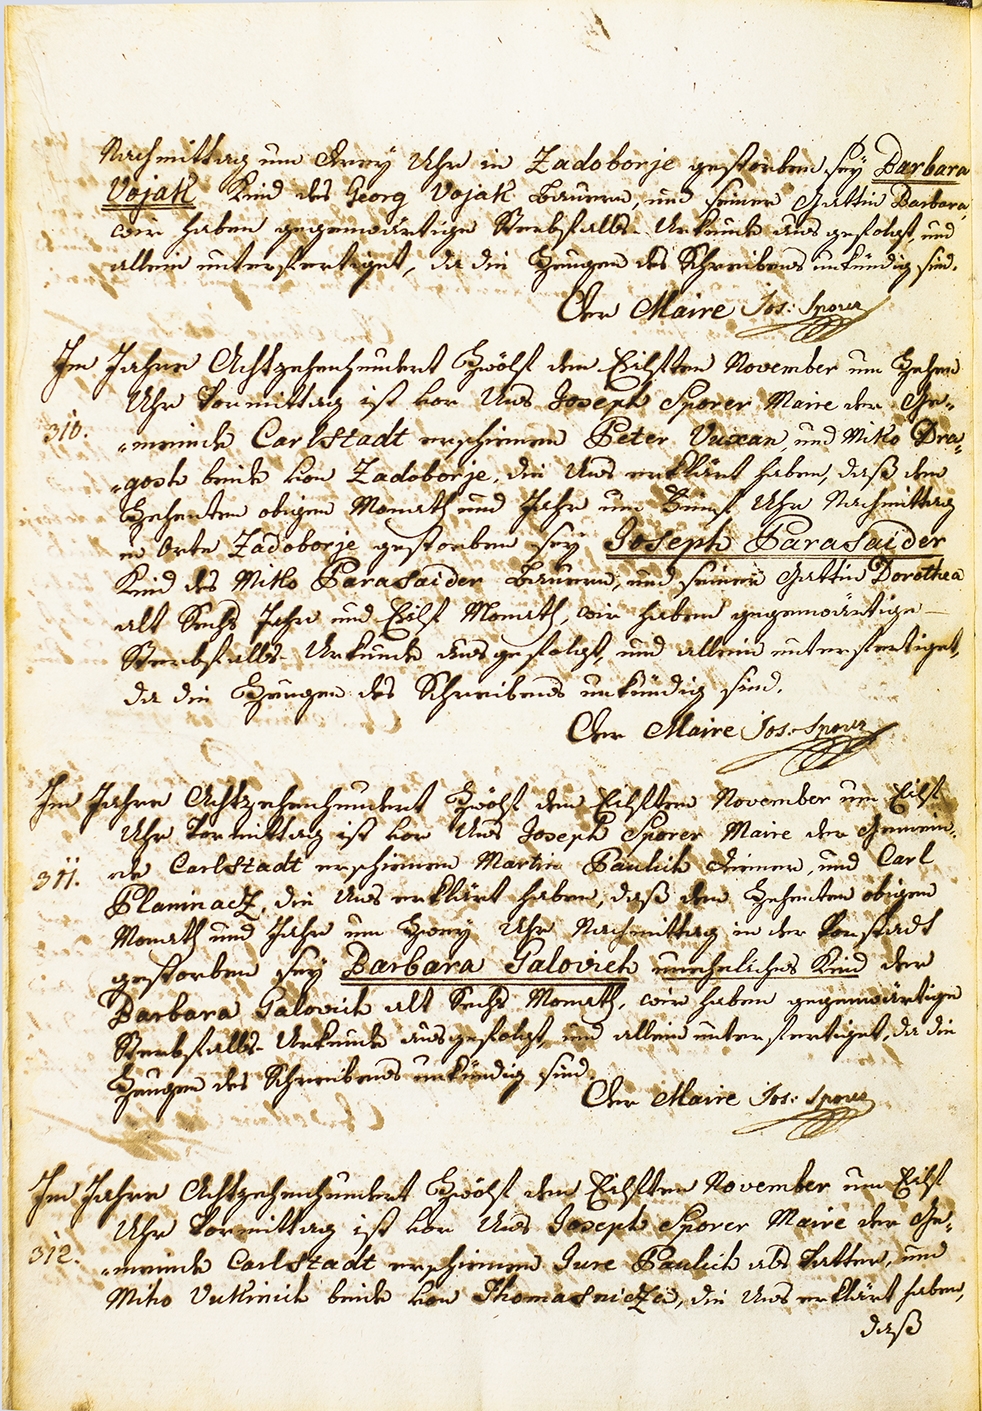 Nachmittag um Drey Uhr in Zadoborje gestorben sey Barbara
Vojak Kind des Georg Vojak Bauern, und seiner Gattin Barbara,
wir haben gegenwärtige Sterbfalls-Urkunde ausgefolgt, und
allein unterfertiget, da die Zeugen des Schreibens unkündig sind.
Der Maire Jos: Sporer
Im Jahre Achtzehenhundert Zwölf den Eilften November um Zehen
Uhr Vormittag ist vor Uns Joseph Sporer Maire der Ge-
310.
-meinde Carlstadt erschienen Peter Vuxan, und Miko Dra-
-gosh beide von Zadoborje, die Uns erklärt haben, daß den
Zehenten obigen Monath und Jahr um Fünf Uhr Nachmittag
im Orte Zadoborje gestorben sey Joseph Parasaider
Kind des Miko Parasaider Bauern, und seiner Gattin Dorothea
alt Sechs Jahr und Eilf Monath, wir haben gegenwärtige
Sterbfalls-Urkunde ausgefolgt, und allein unterfertiget,
da die Zeugen des Schreibens unkündig sind.
Der Maire Jos: Sporer
Im Jahre Achtzehenhundert Zwölf den Eilften November um Eilf
Uhr Vormittag ist vor Uns Joseph Sporer Maire der Gemein-
311.
de Carlstadt erschienen Martin Paulich Diener, und Carl
Planinacz, die Uns erklärt haben, daß den Zehenten obigen
Monath und Jahr um Zwey Uhr Nachmittag in der Vorstadt
gestorben sey Barbara Galovich unehliches Kind der
Barbara Galovich alt Sechs Monath, wir haben gegenwärtige
Sterbfalls-Urkunde ausgefolgt, und allein unterfertiget, da die
Zeugen des Schreibens unkündig sind.
Der Maire Jos: Sporer
Im Jahre Achtzehenhundert Zwölf den Eilften November um Eilf
Uhr Vormittag ist vor Uns Joseph Sporer Maire der Ge-
312.
-meinde Carlstadt erschienen Jure Paulich als Vatter, und
Miko Vukinich beide von Thomasniczi, die Uns erklärt haben,
daß